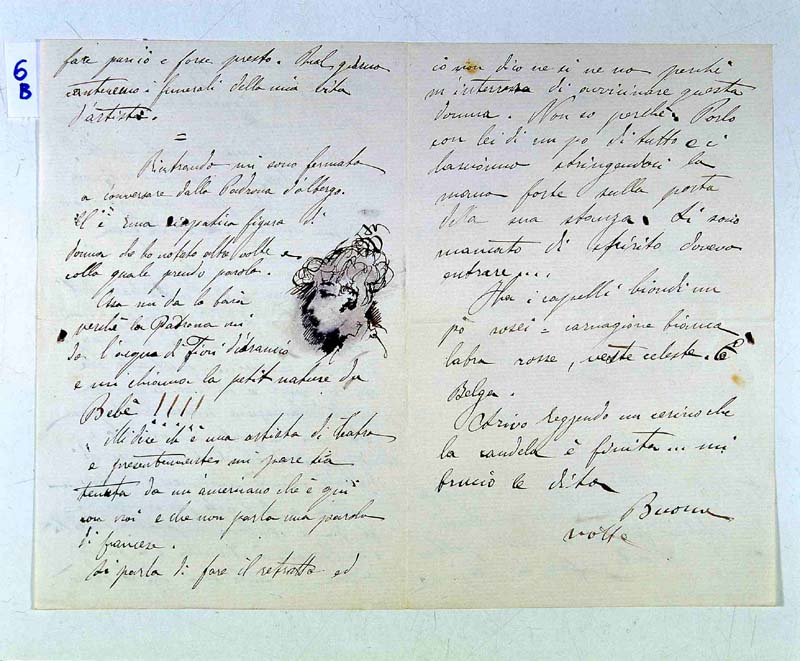 6
B
fare perciò e forse presto. Qual giorno
canteremo i funerali della mia vita
d'artista.
=
Rientrando mi sono fermata
a conversare dalla Padrona d'albergo.
C'è una simpatica figura di
donna che ho notato altre volte e
colla quale prendo parola.
Essa mi da la baia
perchè la Padrona mi
da l'acqua di Fiori d'arancio
e mi chiama la petit nature du
Bebè !!!!
Mi dice ch'è una artista di Teatro
e presentemente mi pare sia
tenuta da un americano che è qui
con noi e che non parla una parola
di francese.
Si parla di fare il ritratto ed
io non dico ne si ne no perchè
m'interessa di avvicinare questa
donna. Non so perchè. Parlo
con lei di un po di tutto e ci
lasciamo stringendosi la
mano forte sulla porta
della sua stanza. Si sono
mancato di spirito dovevo
entrare....
Ha i capelli biondi un
pò rosei = carnagione bianca
labra rosse, veste celeste. È
Belga.
Arrivo reggendo un cerino che
la candela è finita... mi
brucio le dita
Buona
notte